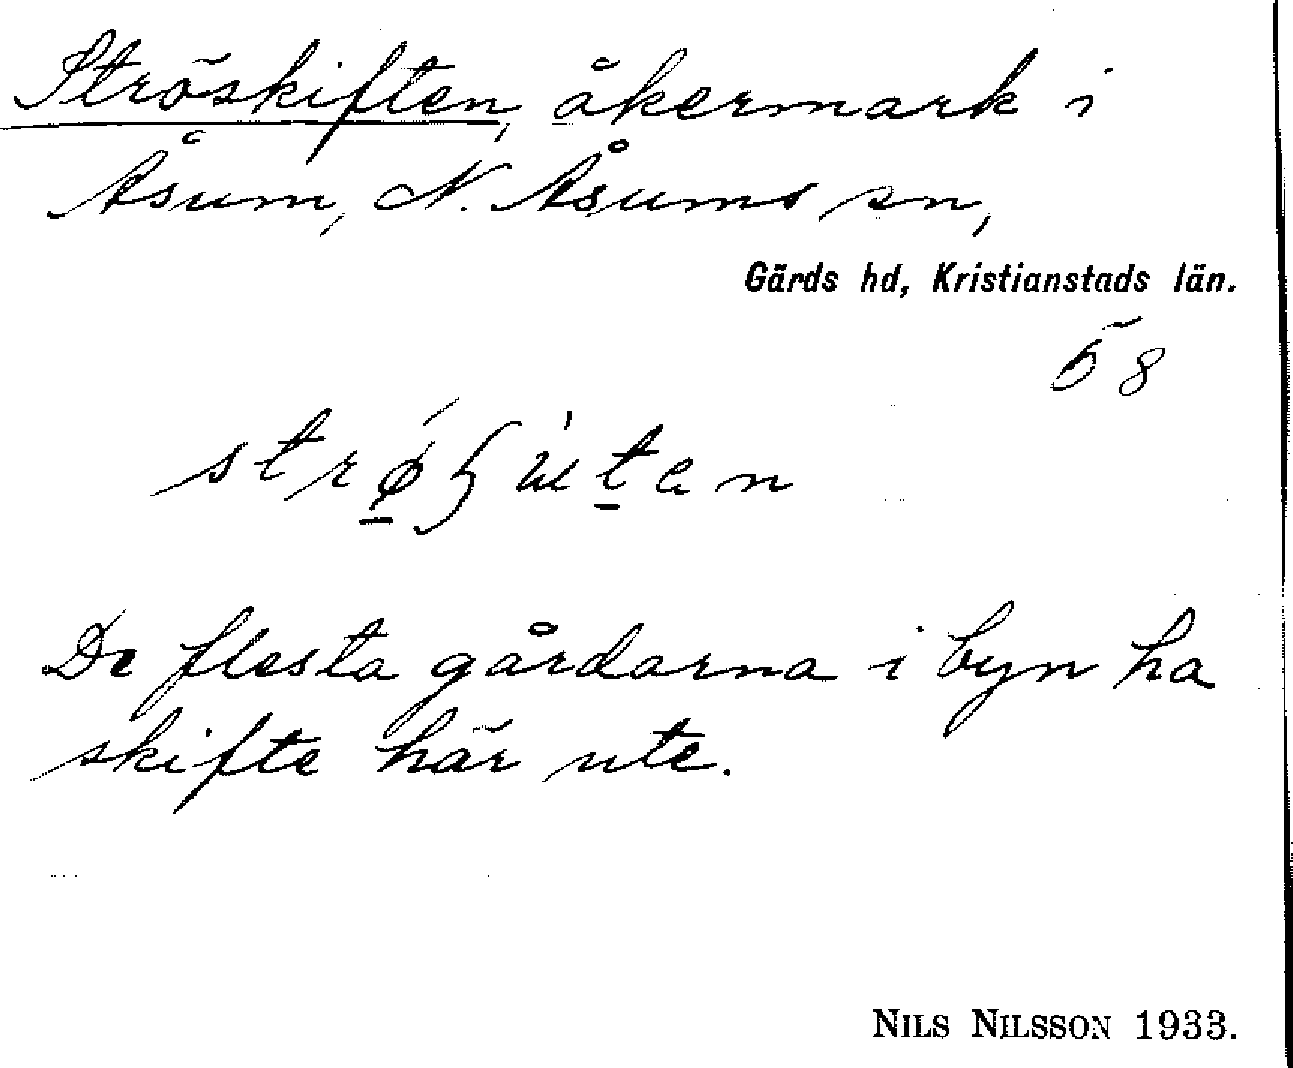 Ströskiften, åkermark i
Åsum, N. Åsums sn,
Gärds hd, Kristianstads län.
58
De flesta gårdarna i byn ha
skifte här ute.
NILS NILSSON 1933.